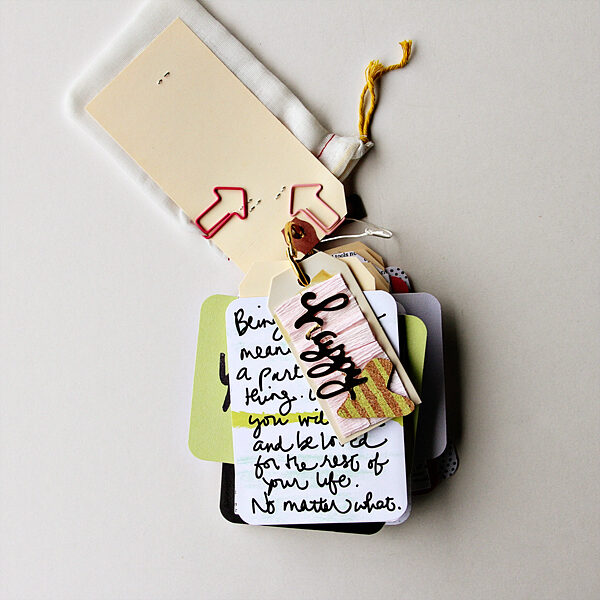 happy
Being
mean
a part
thing.
you wil
and be loved
for the rest of
your life.
No matter what.